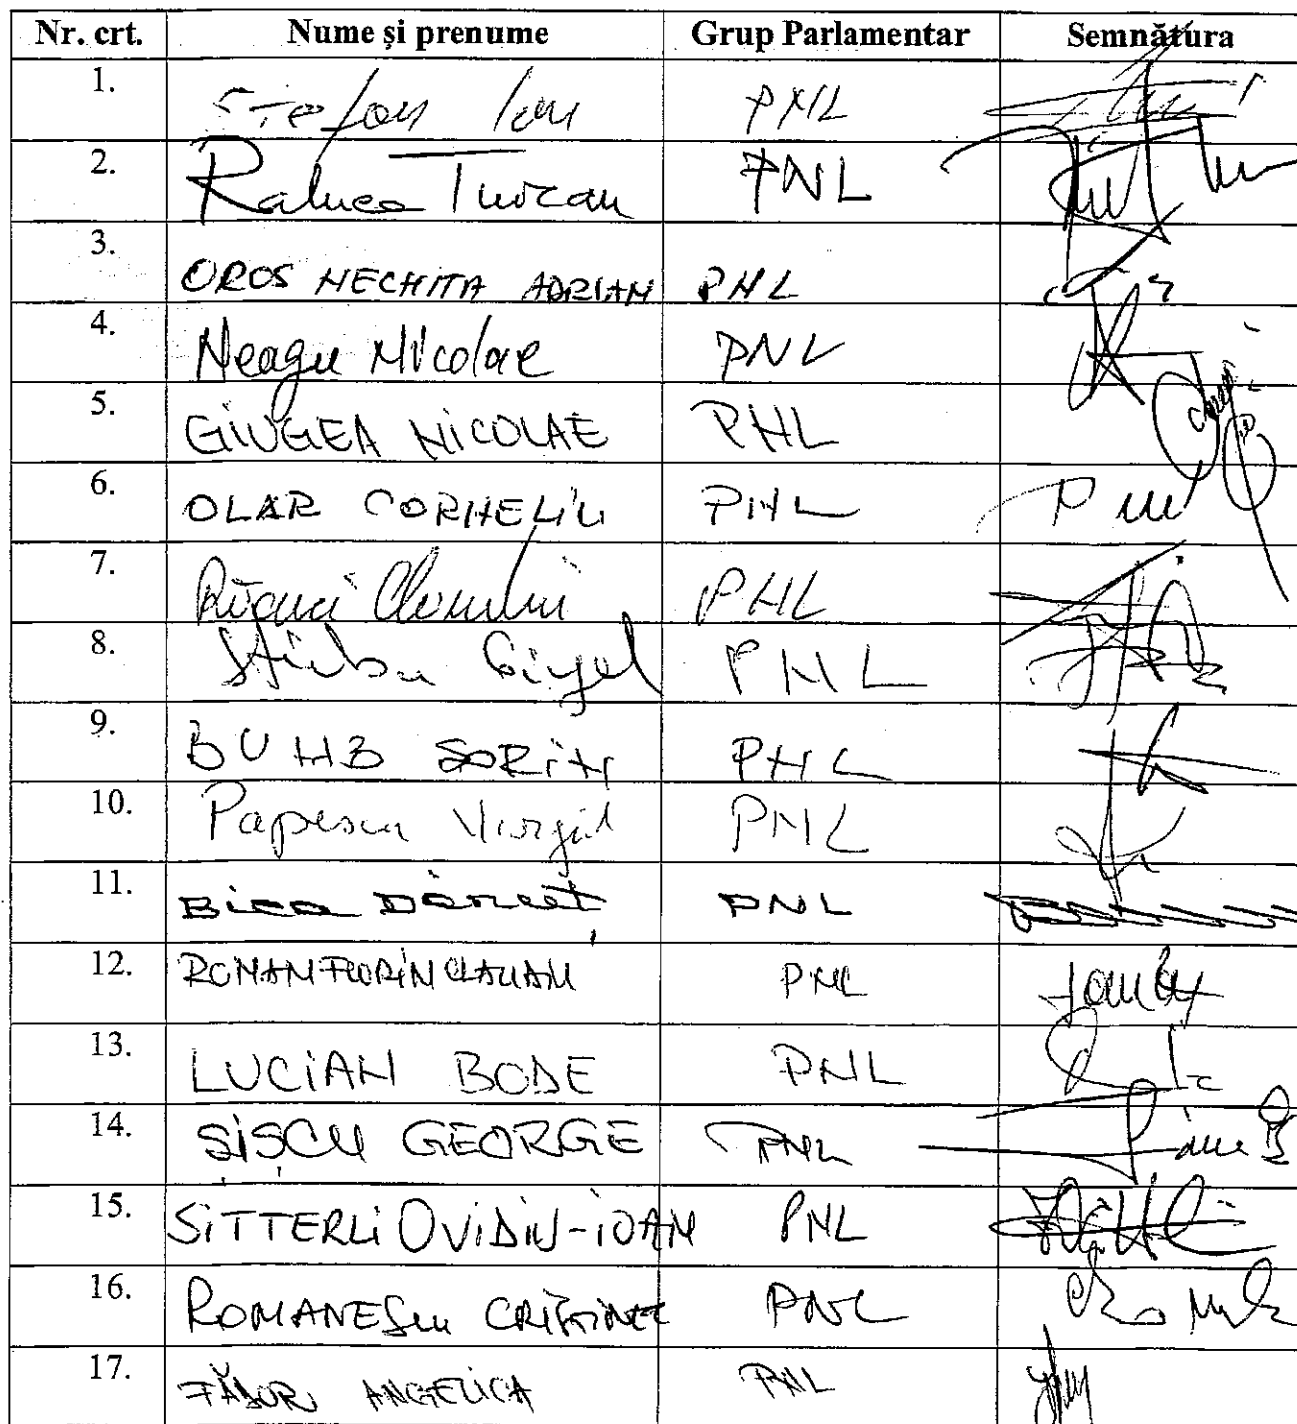 Nr. crt. Nume și prenume Grup Parlamentar Semnătura
1. Stefan Ion PNL
2. Raluca Turcan PNL
3. OROS NECHITA ADRIAN PNL
4. Neagu Nicolae PNL
5. GIUGEA NICOLAE PNL
6. OLAR CORNELIU PNL
7. PNL
8. Știrbu Gigel PNL
9. BUMB SORIN PNL
10. Popescu Virgil PNL
11. Bica Dănuț PNL
12. ROMAN FLORIN CLAUDIU PNL
13. LUCIAN BODE PNL
14. ȘIȘCU GEORGE PNL
15. SITTERLI OVIDIU-IOAN PNL
16. ROMANESCU CRISTINEL PNL
17. FĂDOR ANGELICA PNL